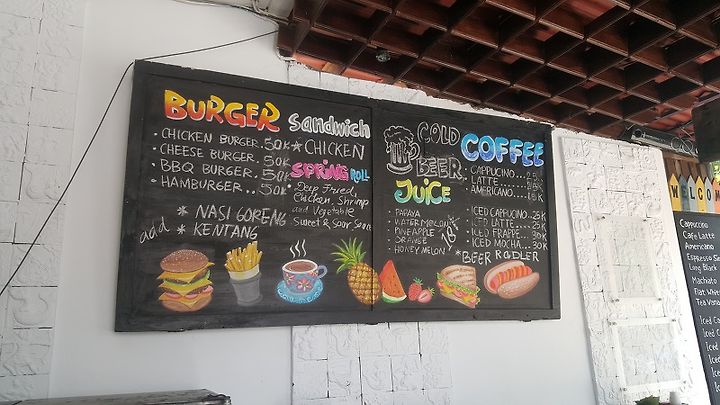 BURGER
• CHICKEN BURGER. 50K
• CHEESE BURGER. 50K
• BBQ BURGER. 50K
• HAMBURGER.. 50K
add * NASI GORENG
* KENTANG
Sandwich
* CHICKEN
SPRING ROLL
Deep Fried,
Chicken, Shrimp
and Vegetable
Sweet & Sour Sauce
COLD
BEER
JUICE
PAPAYA
WATERMELON
PINEAPPLE
ORANGE
HONEY MELON
COFFEE
CAPPUCINO...
LATTE
AMERICANO
ICED CAPUCINO...25K
ICED LATTE...25K
ICED FRAPPE...30K
ICED MOCHA...30K
*BEER RADLER
WELCOM
Capuccino
Cafe Latte
Americano
Espresso
Long Black
Machiato
Flat
Iced
Iced
Iced
Iced
Iced